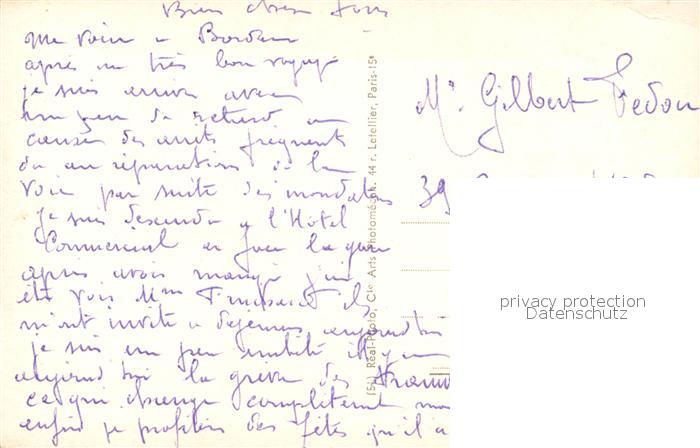 Bien chers tous
me voici a Bordeaux
après un très bon voyage
je suis arrivé avec
un peu de retard a
causes des arrets fréquents
du au réparations de la
voie par suite des inondations
je suis descendu a l'Hôtel
Commercial en face la gare
après avoir mangé j'ai
été voir Mme ils
m'ont invité a déjeuner aujourd'hui
je suis un peu embêté il y a
aujourd'hui la grève des Tramw
ce qui change complètement
enfin je profiterai des fêtes qu'il a
(51) Réal-Photo, Cie Arts Photoméca. 44 r. Letellier, Paris-15e
Mr Gilbert Fedou
39
privacy protection
Datenschutz